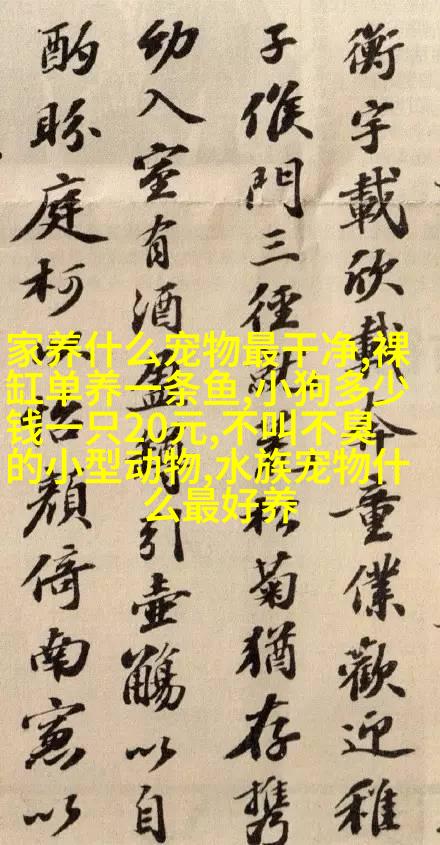 衡宇載欣載奔童僕歡迎稚
子候門三徑就荒松菊猶存携
幼入室有酒盈樽引壺觴以自
酌眄庭柯以怡顔倚南窓以
家养什么宠物最干净,裸
缸单养一条鱼,小狗多少
钱一只20元,不叫不臭
的小型动物,水族宠物什
么最好养